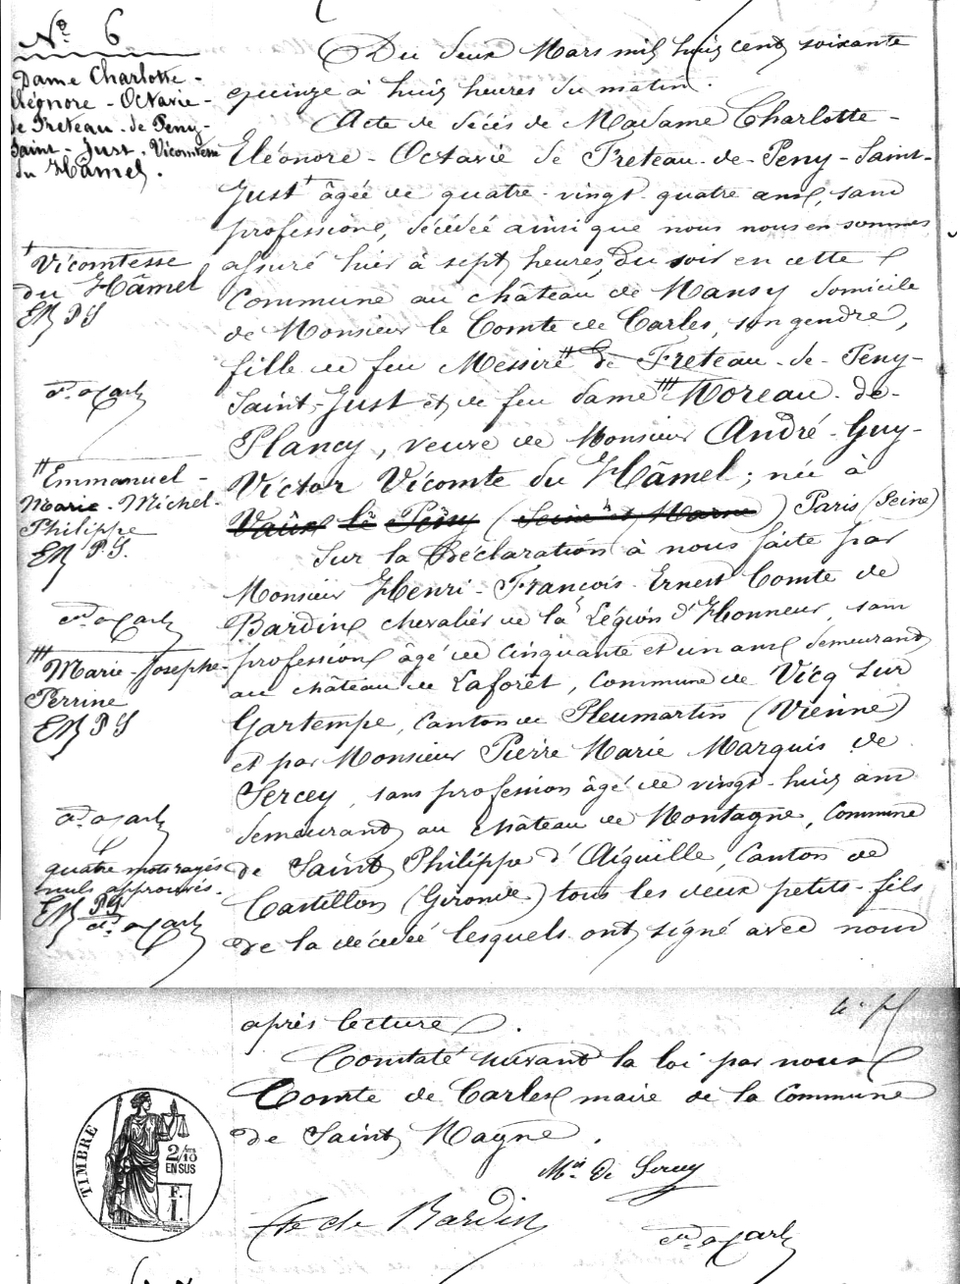 N° 6
Dame Charlotte-
Eléonore-Octavie-
de Freteau-de Peny-
Saint-Just-Vicomtesse
du Hâmel.
Du deux Mars mil huit cent soixante
quinze à huit heures du matin.
Acte de décés de Madame Charlotte-
Eléonore-Octavie de Freteau-de-Peny-Saint-
Just† âgée de quatre-vingt-quatre ans, sans
profession, décédée ainsi que nous nous en sommes
assuré hier à sept heures du soir en cette
Commune au château de Mansy domicile
de Monsieur le Comte de Carles, son gendre,
fille de feu Messire†† de Freteau-de-Peny-
Saint-Just et de feu dame††† Moreau-de-
Plancy, veuve de Monsieur André-Guy-
Victor Vicomte du Hâmel; née à
Vaux le Peny (Seine et Marne) Paris (Seine)
Sur la Déclaration à nous faite par
Monsieur Henri-François-Ernest Comte de
Bardin chevalier de la Légion d'Honneur, sans
profession âgé de cinquante et un ans demeurant
au château de Laforêt, Commune de Vicq sur
Gartempe, Canton de Pleumartin (Vienne)
et par Monsieur Pierre Marie Marquis de
Sercey, sans profession âgé de vingt-huit ans
demeurant au château de Montagne, Commune
de Saint Philippe d'Aiguille, Canton de
Castillon (Gironde) tous les deux petits-fils
de la décédée lesquels ont signé avec nous
† Vicomtesse
du Hâmel
†† Emmanuel-
Marie-Michel-
Philippe
††† Marie-Josephe-
Perrine
quatre mots rayés
nuls approuvés.
après lecture.
Constaté suivant la loi par nous
Comte de Carles maire de la Commune
de Saint Magne.
Mis de Sercey
Cte de Bardin
TIMBRE
2/10
EN SUS
F.
1.